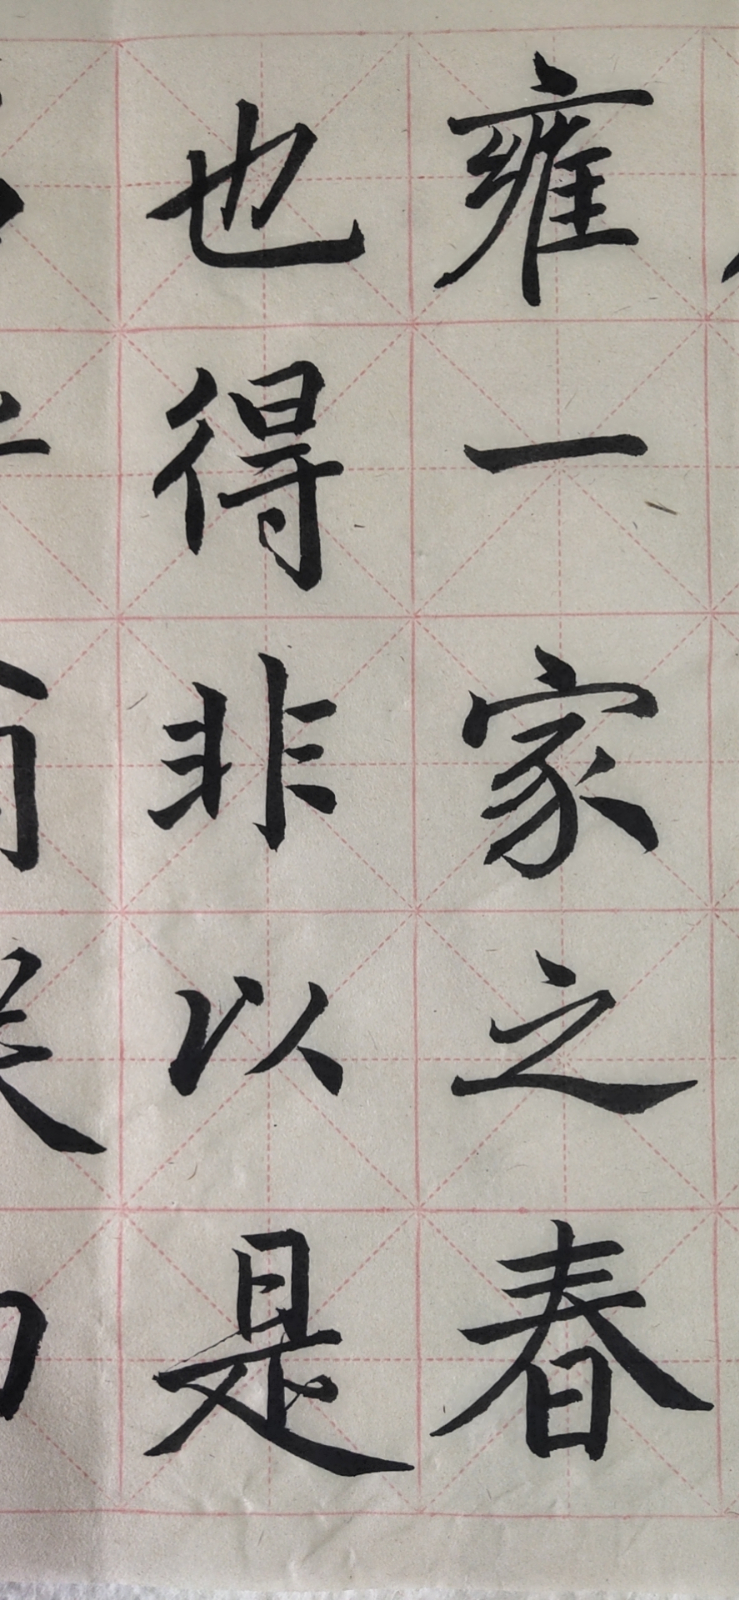 雍一家之春
也得非以是